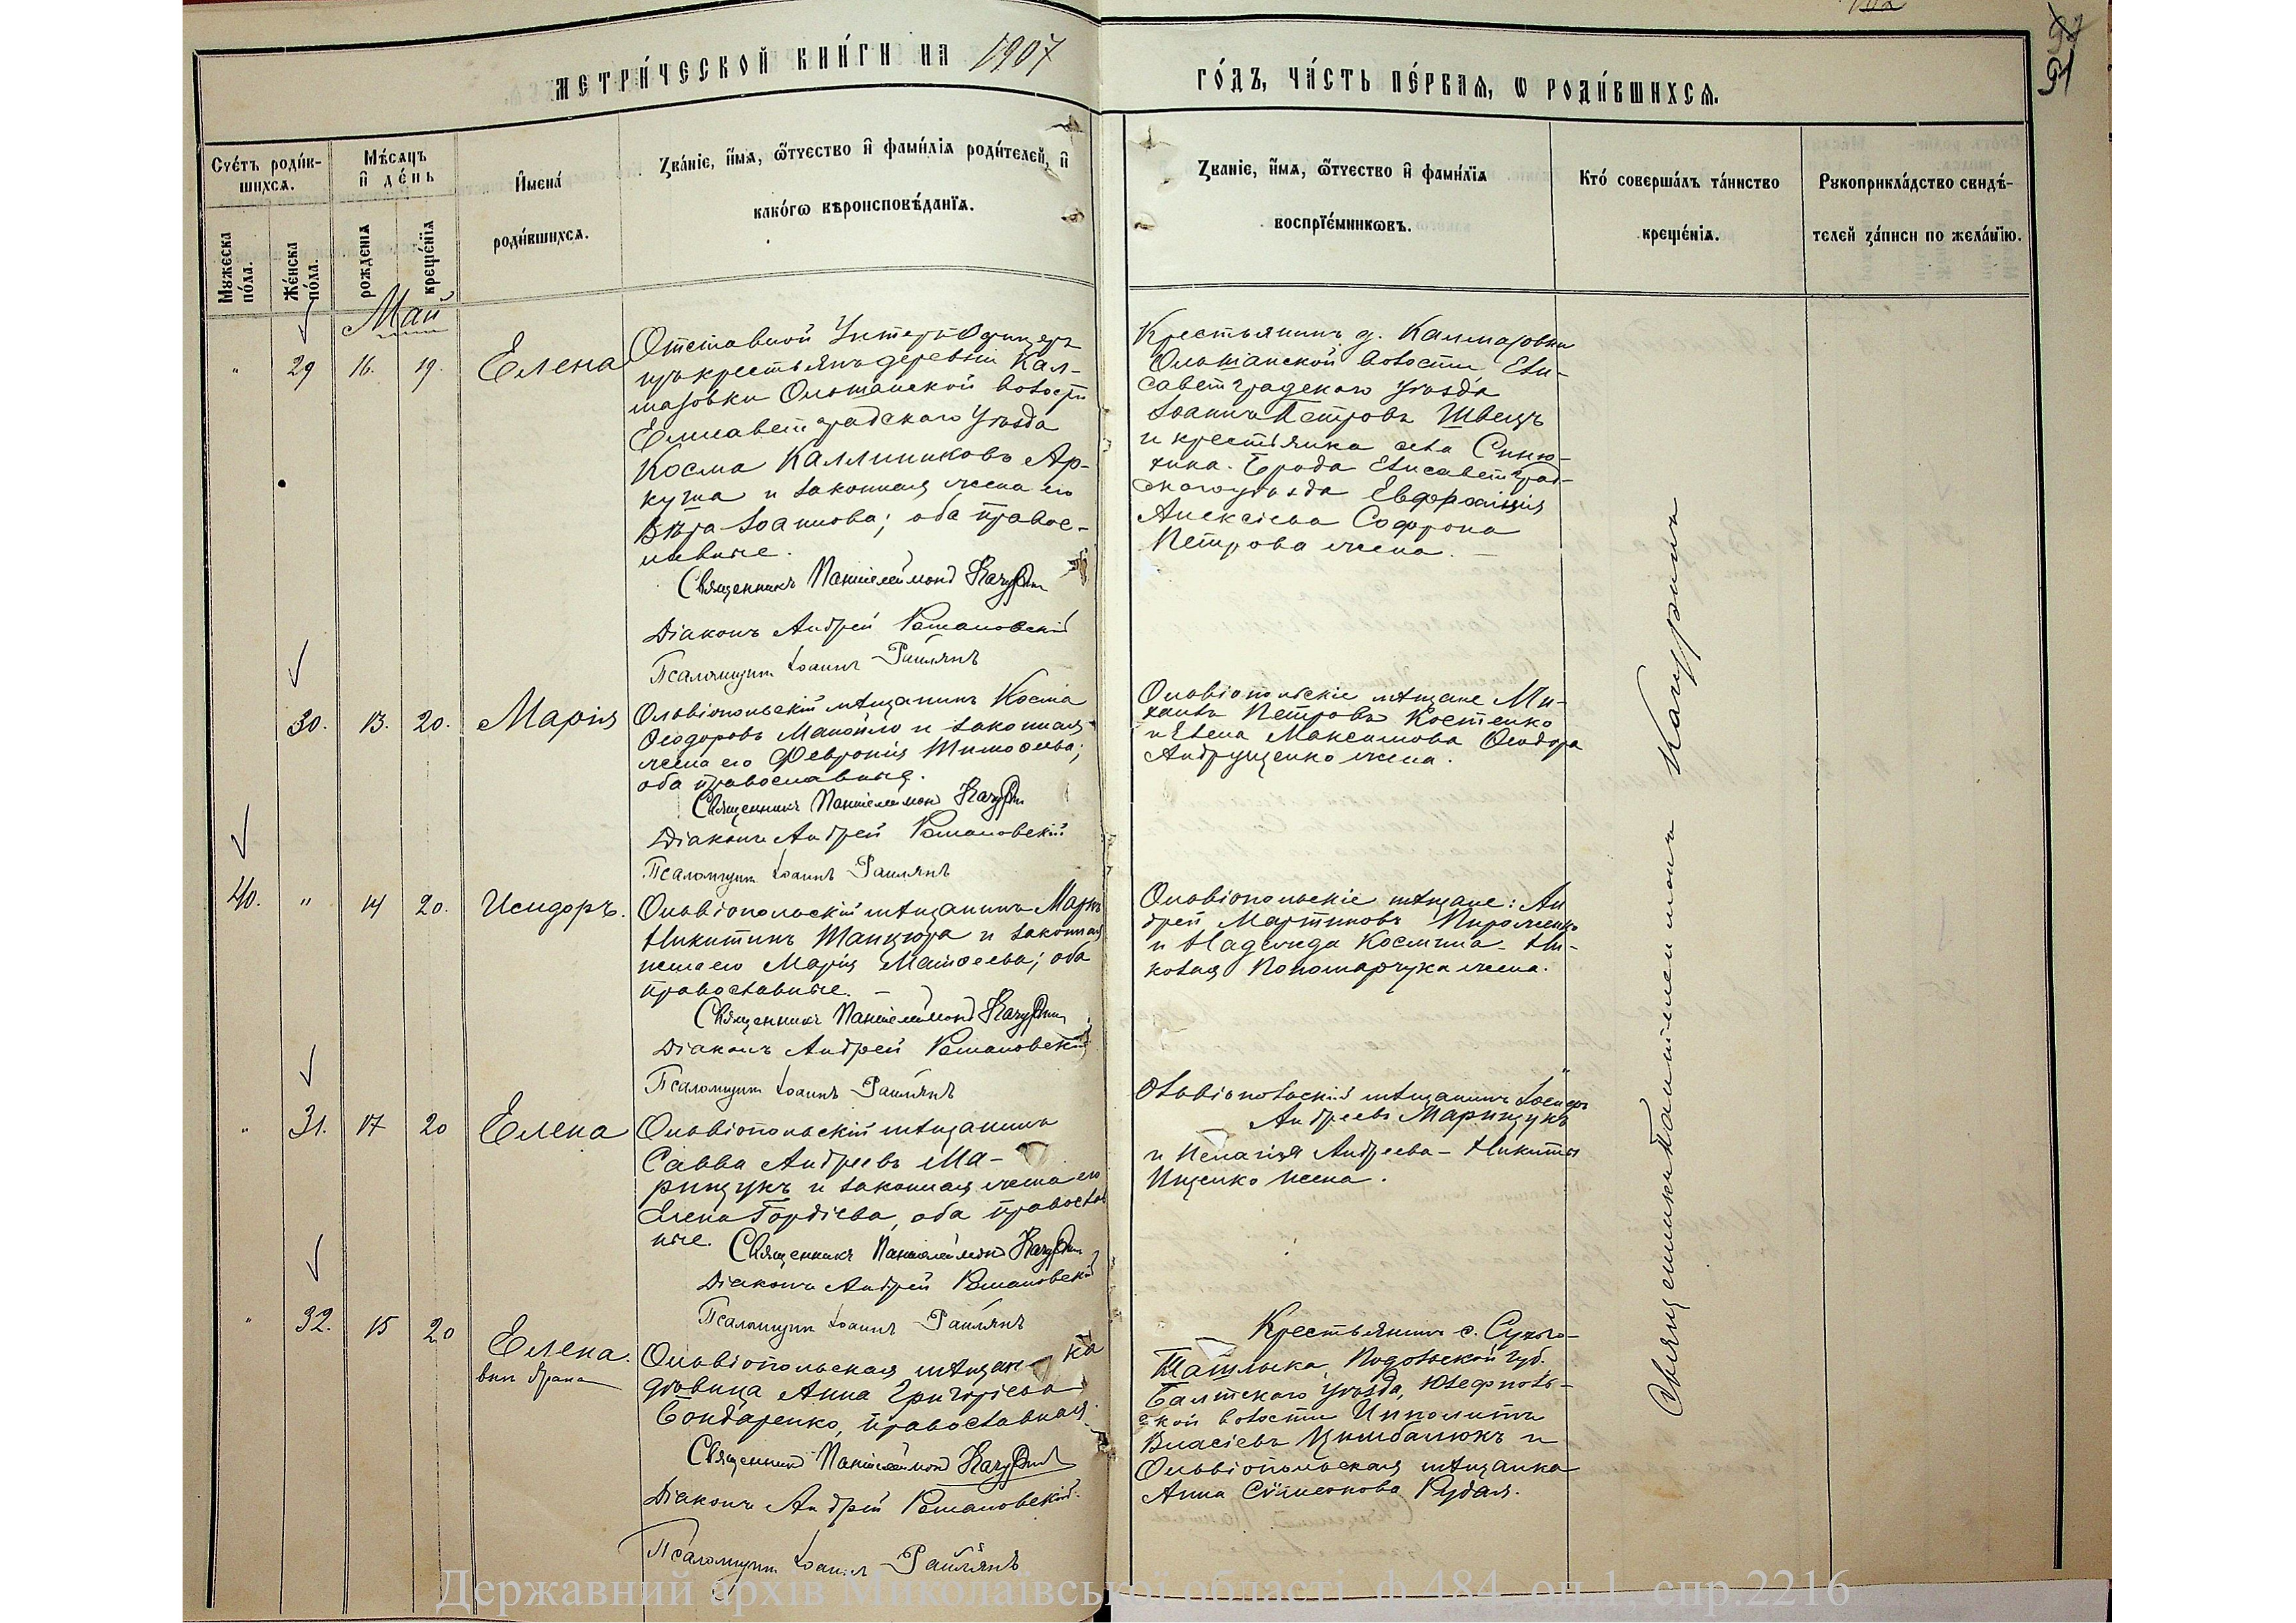 МЕТРИ́ЧЕСКОЙ КНИ́ГИ НА 1907
ГО́ДЪ, ЧА́СТЬ ПЕ́РВАЯ, Ѡ РОДИ́ВШИХСЯ.
Сче́тъ роди́в-
шихся.
Мужеска по́ла.
Же́нска по́ла.
Мѣ́сяцъ
и҆ де́нь
рожденія
креще́нїя
И҆мена́
роди́вшихся.
Зва́нїе, и҆́мя, ѻ҆́тчество и҆ фами́лїа роди́телей, и҆
како́гѡ вѣроисповѣ́данїя.
Званїе, и҆́мя, ѻ҆́тчество и҆ фами́лїя
воспрїе́мникѡвъ.
Кто́ соверша́лъ та́инство
креще́нїя.
Рукоприкла́дство свидѣ́-
телей за́писи по жела́нїю.
Май
" 29 16. 19. Елена
Отставной Унтеръ Офицеръ
изъ крестьянъ деревни Кал-
мазовки Ольшанской волости
Елисаветградскаго уѣзда
Косма Каллиниковъ Ар-
куша и законная жена его
Вѣра Іоаннова; оба правос-
лавные.
Священникъ Пантелеймонъ Качурин
Діаконъ Андрей Романовскій
Псаломщик Іоаннъ Раилянъ
Крестьянинъ д. Калмазовки
Ольшанской волости, Ели-
саветградскаго уѣзда
Іоаннъ Петровъ Швецъ
и крестьянка села Синю-
хина-Брода Елисаветград-
скаго уѣзда Евфросинія
Алексіева Софрона
Петрова жена.
30. 13. 20. Марія
Ольвіопольскій мѣщанинъ Косма
Ѳеодоровъ Манойло и законная
жена его Февронія Тимоѳеева;
оба православные.
Священникъ Пантелеймонъ Качурин
Діаконъ Андрей Романовскій
Псаломщик Іоаннъ Раилянъ
Ольвіопольскіе мѣщане Ми-
хаилъ Петровъ Костенко
и Елена Максимова Ѳеодора
Андрущенко жена.
40. " 14 20. Исидоръ.
Ольвіопольскій мѣщанинъ Маркъ
Никитинъ Шанцюра и законная
жена его Марія Матѳеева; оба
православные.
Священникъ Пантелеймонъ Качурин
Діаконъ Андрей Романовскій
Псаломщик Іоаннъ Раилянъ
Ольвіопольскіе мѣщане: Ан
дрей Мартиновъ
и Надежда Космина - Ни-
колая Пономарчука жена.
" 31. 17 20 Елена
Ольвіопольскій мѣщанинъ
Савва Андреевъ Ма-
рищукъ и законная жена его
Елена Гордіева, оба православ
ные. Священникъ Пантелеймонъ Качурин
Діаконъ Андрей Романовскій
Псаломщик Іоаннъ Раилянъ
Ольвіопольскій мѣщанинъ Іосифъ
Андреевъ Марищукъ
и Пелагія Андреева - Никиты
Ищенко жена.
" 32. 15 20 Елена.
внѣ брака
Ольвіопольская мѣщанка
дѣвица Анна Григоріева
Бондаренко, православная.
Священникъ Пантелеймонъ Качурин
Діаконъ Андрей Романовскій.
Псаломщик Іоаннъ Раилянъ
Крестьянинъ с. Сухого-
Ташлыка Подольской губ.
Балтскаго уѣзда, Юзефполь-
ской волости Ипполитъ
Власіевъ Цымбалюкъ и
Ольвіопольская мѣщанка
Анна Сѵмеонова Рудая.
Священникъ Пантелеймонъ Качуринъ
91
Державний архів Миколаївської області, ф.484, оп.1, спр.2216